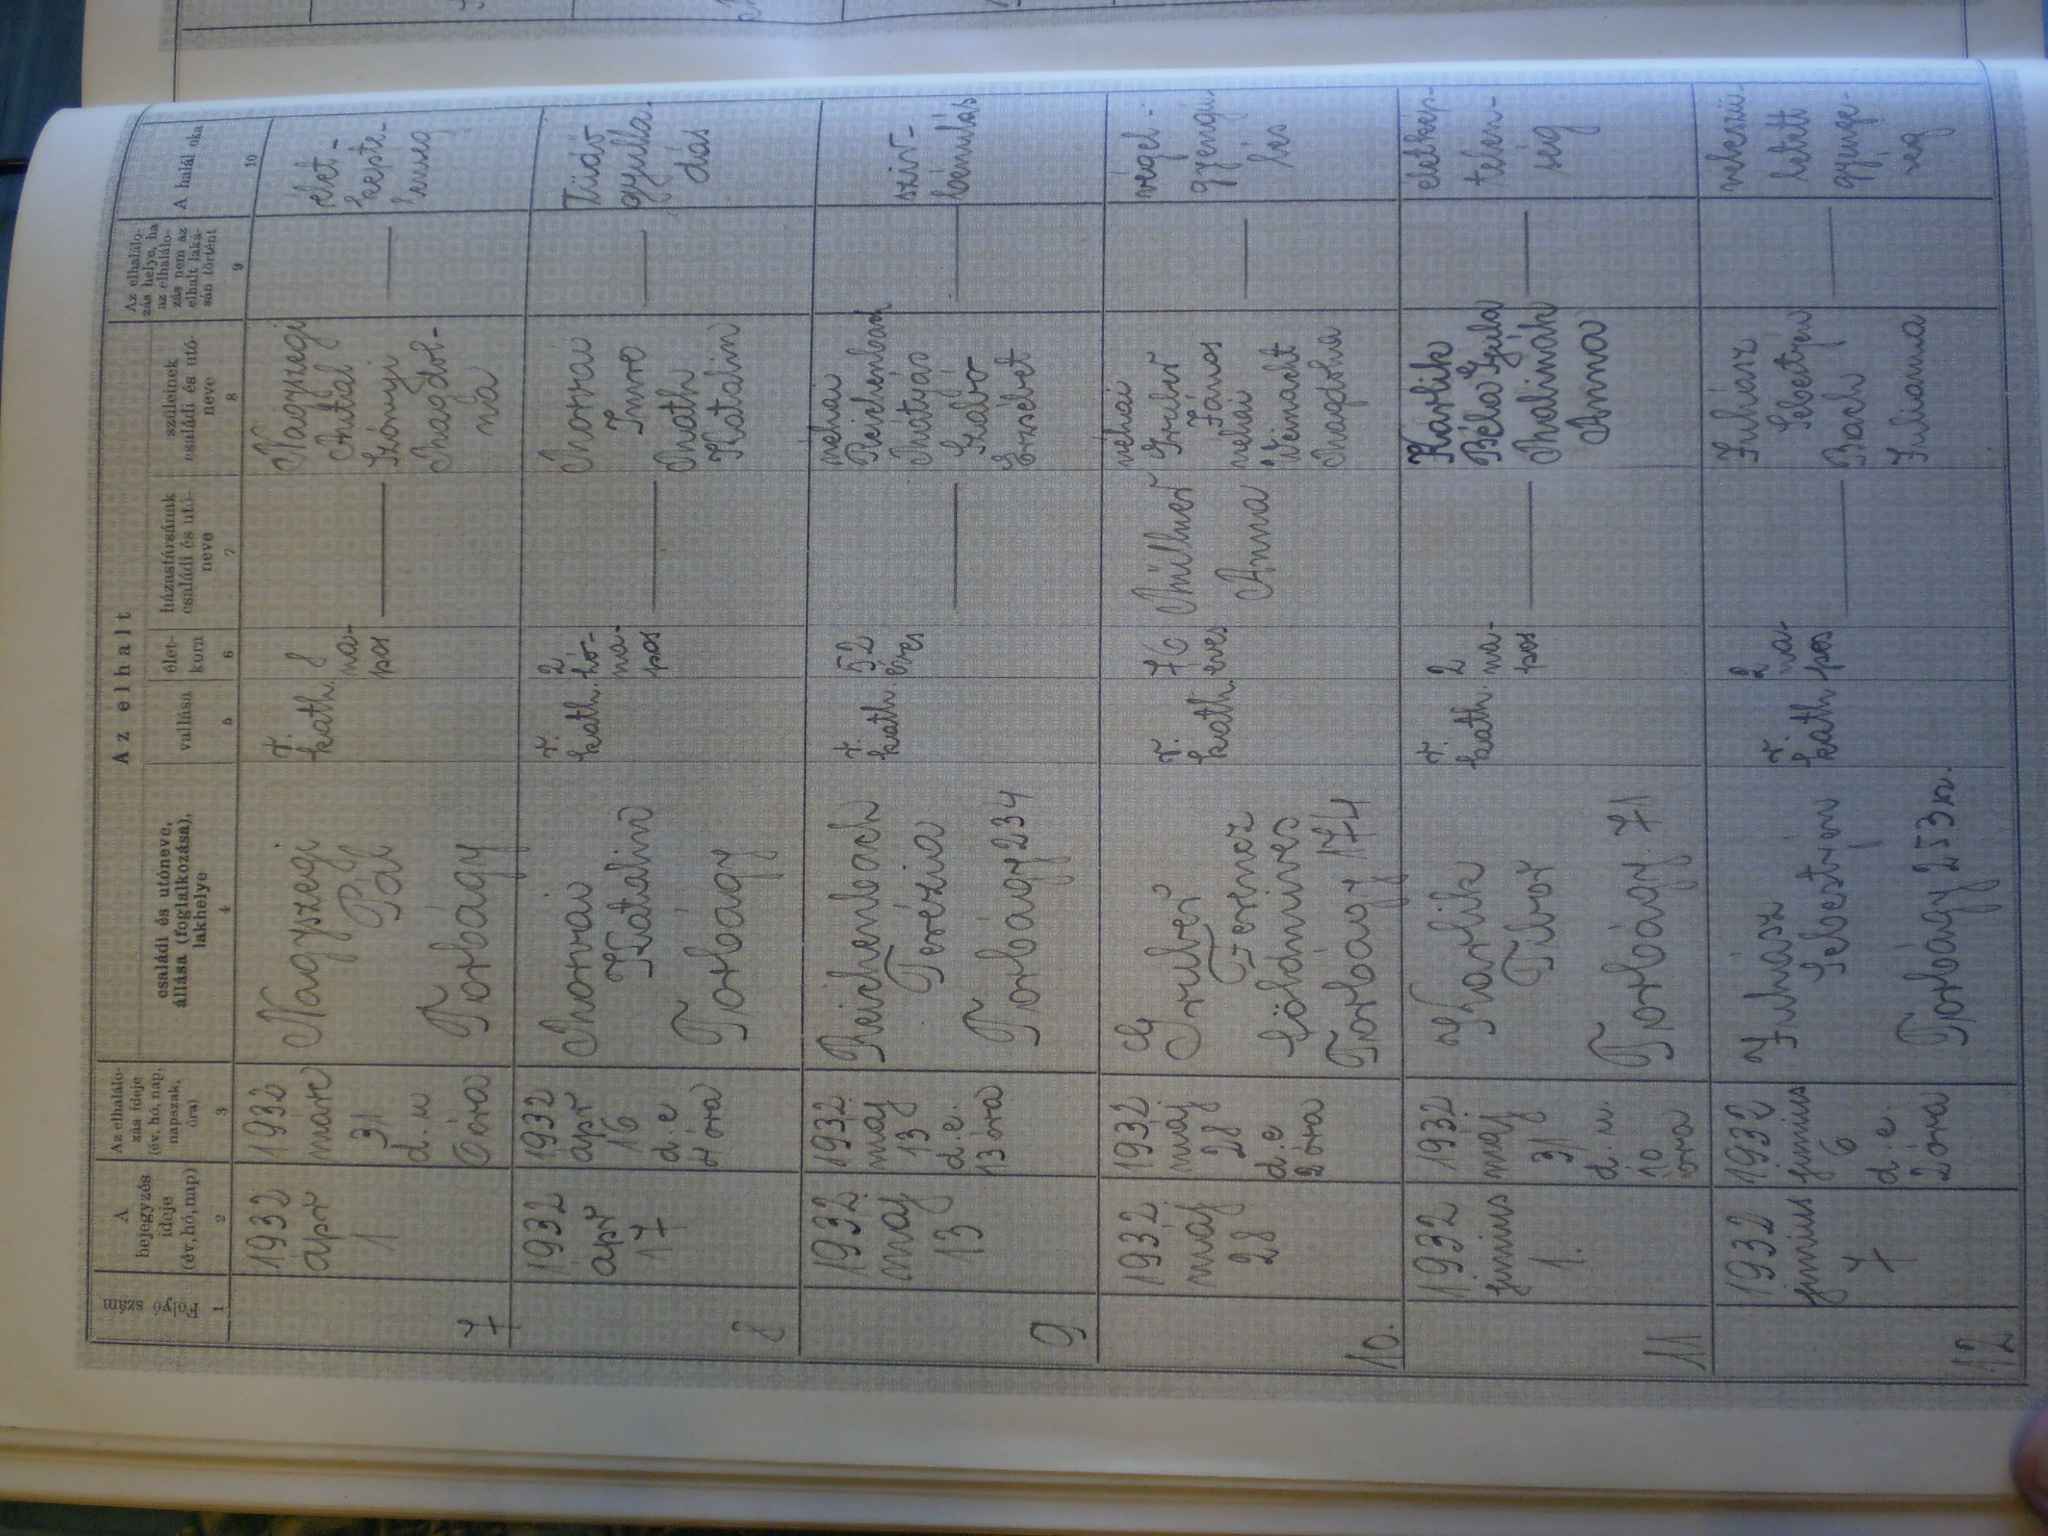 Az elhalt
Folyó szám
A bejegyzés ideje (év, hó, nap)
Az elhalálo-
zás ideje
(év, hó, nap,
napszak,
óra)
családi és utóneve,
állása (foglalkozása),
lakhelye
vallása
élet-
kora
házastársának
családi és utó-
neve
szüleinek
családi és utó-
neve
Az elhalálo-
zás helye, ha
az elhalálo-
zás nem az
elhalt laká-
sán történt
A halál oka
1 2 3 4 5 6 7 8 9 10
7
1932
apr
1
1932
márc
31
d. u
6 óra
Nagyszegi
Pál
Torbágy
r.
kath.
8
na-
pos
Nagyszegi
Antal
Szőnyi
Magdol-
na
élet-
képte-
lenség
8
1932
apr
17
1932
apr
16
d. e
4 óra
Morvai
Katalin
Torbágy
r.
kath.
2
hó-
na-
pos
Morvai
Imre
Math
Katalin
Tüdő
gyulla-
dás
9
1932
máj
13
1932
máj
13
d. e.
13 óra
Reichenbach
Terézia
Torbágy 234
r.
kath.
52
éves
néhai
Reichenbach
Mátyás
Szabó
Erzsébet
szív-
bénulás
10.
1932
máj
28
1932
máj
28
d. e
2 óra
Gruber
Ferencz
földmíves
Torbágy 174
r.
kath.
76
éves
Müllner
Anna
néhai
Gruber
János
néhai
Weinhart
Magdolna
végel-
gyengü-
lés
11
1932
június
1.
1932
maj
31
d. u.
10
óra
Karlik
Tibor
Torbágy. 71
r.
kath.
2
na-
pos
Karlik
Béla Gyula
Malinák
Anna
életkép-
telen-
ség
12
1932
június
7
1932
június
6
d. e.
2 óra
Juhász
Sebestyén
Torbágy 253 n.
r.
kath
2
na-
pos
Juhász
Sebestyén
Bach
Julianna
veleszü-
letett
gyenge-
ség